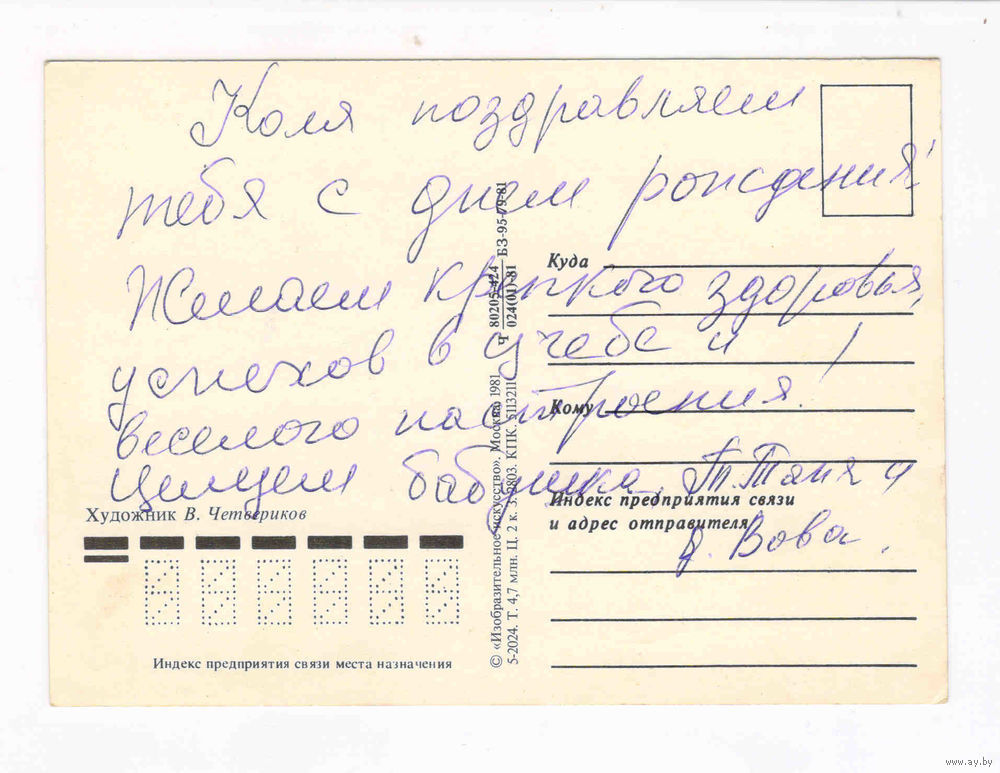 Коля поздравляем
тебя с днём рождения!
Желаем крепкого здоровья,
успехов в учебе и
веселого настроения!
Целуем бабушка, т. Таня и
д. Вова.
Куда
Кому
Индекс предприятия связи
и адрес отправителя
Художник В. Четвериков
Индекс предприятия связи места назначения
© «Изобразительное искусство». Москва 1981
5-2024. Т. 4,7 млн. Ц. 2 к. З. 2803. КПК. 5113211
Ч 80205-424 БЗ-95-79-81
024(01)-81
www.ay.by